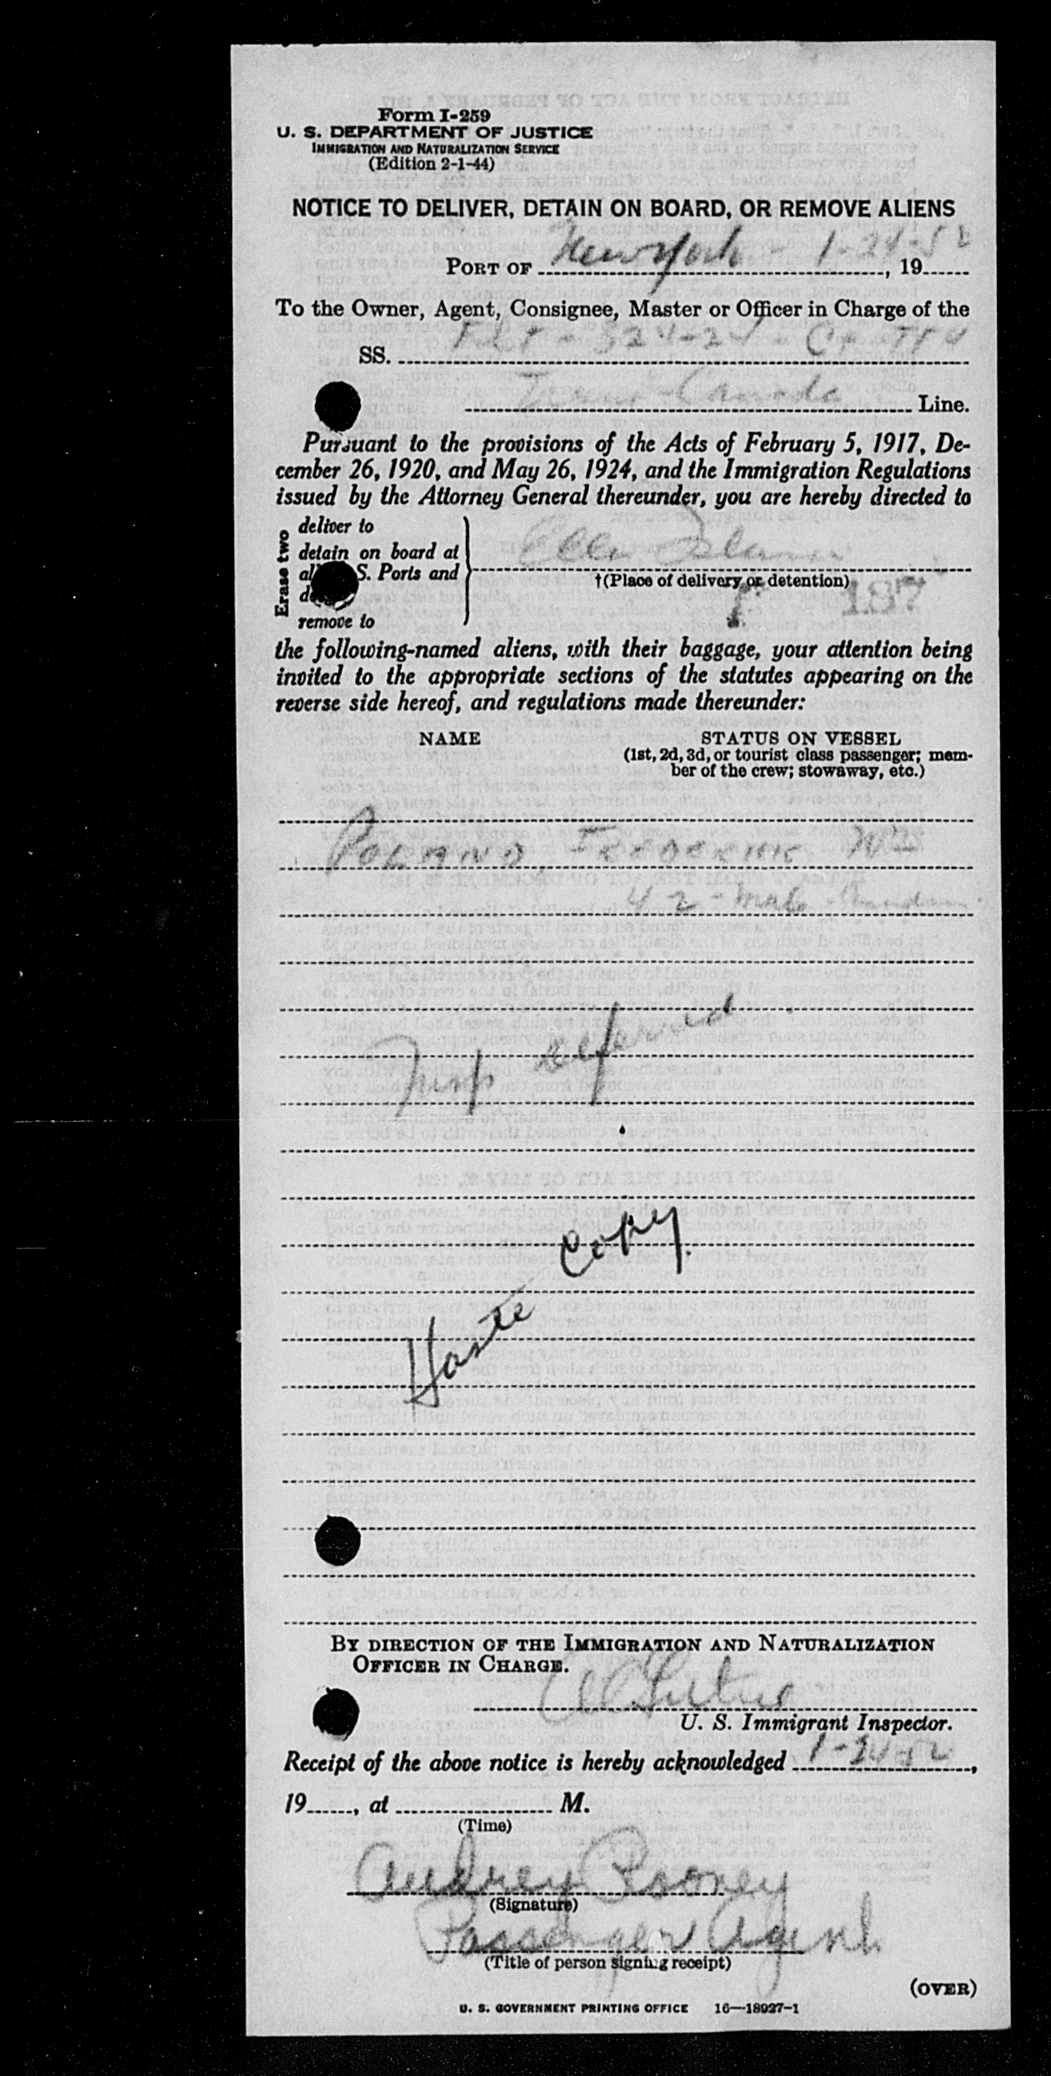 Form I-259
U. S. DEPARTMENT OF JUSTICE
IMMIGRATION AND NATURALIZATION SERVICE
(Edition 2-1-44)
NOTICE TO DELIVER, DETAIN ON BOARD, OR REMOVE ALIENS
PORT OF New York - 1-24-52, 19
To the Owner, Agent, Consignee, Master or Officer in Charge of the
SS. Flt - 324-24 - CF-
Trans-Canada Line.
Pursuant to the provisions of the Acts of February 5, 1917, De-
cember 26, 1920, and May 26, 1924, and the Immigration Regulations
issued by the Attorney General thereunder, you are hereby directed to
Erase two
deliver to
detain on board at
S. Ports and
remove to
Ellis Island
†(Place of delivery or detention)
187
the following-named aliens, with their baggage, your attention being
invited to the appropriate sections of the statutes appearing on the
reverse side hereof, and regulations made thereunder:
NAME
STATUS ON VESSEL
(1st, 2d, 3d, or tourist class passenger; mem-
ber of the crew; stowaway, etc.)
POLAND FREDERICK Wm
42 - male - Canadian
Insp deferred
Haste Copy.
BY DIRECTION OF THE IMMIGRATION AND NATURALIZATION
OFFICER IN CHARGE.
U. S. Immigrant Inspector.
Receipt of the above notice is hereby acknowledged 1-24-52,
19, at M.
(Time)
Audrey Rooney
(Signature)
Passenger Agent
(Title of person signing receipt)
(OVER)
U. S. GOVERNMENT PRINTING OFFICE 16—18927-1